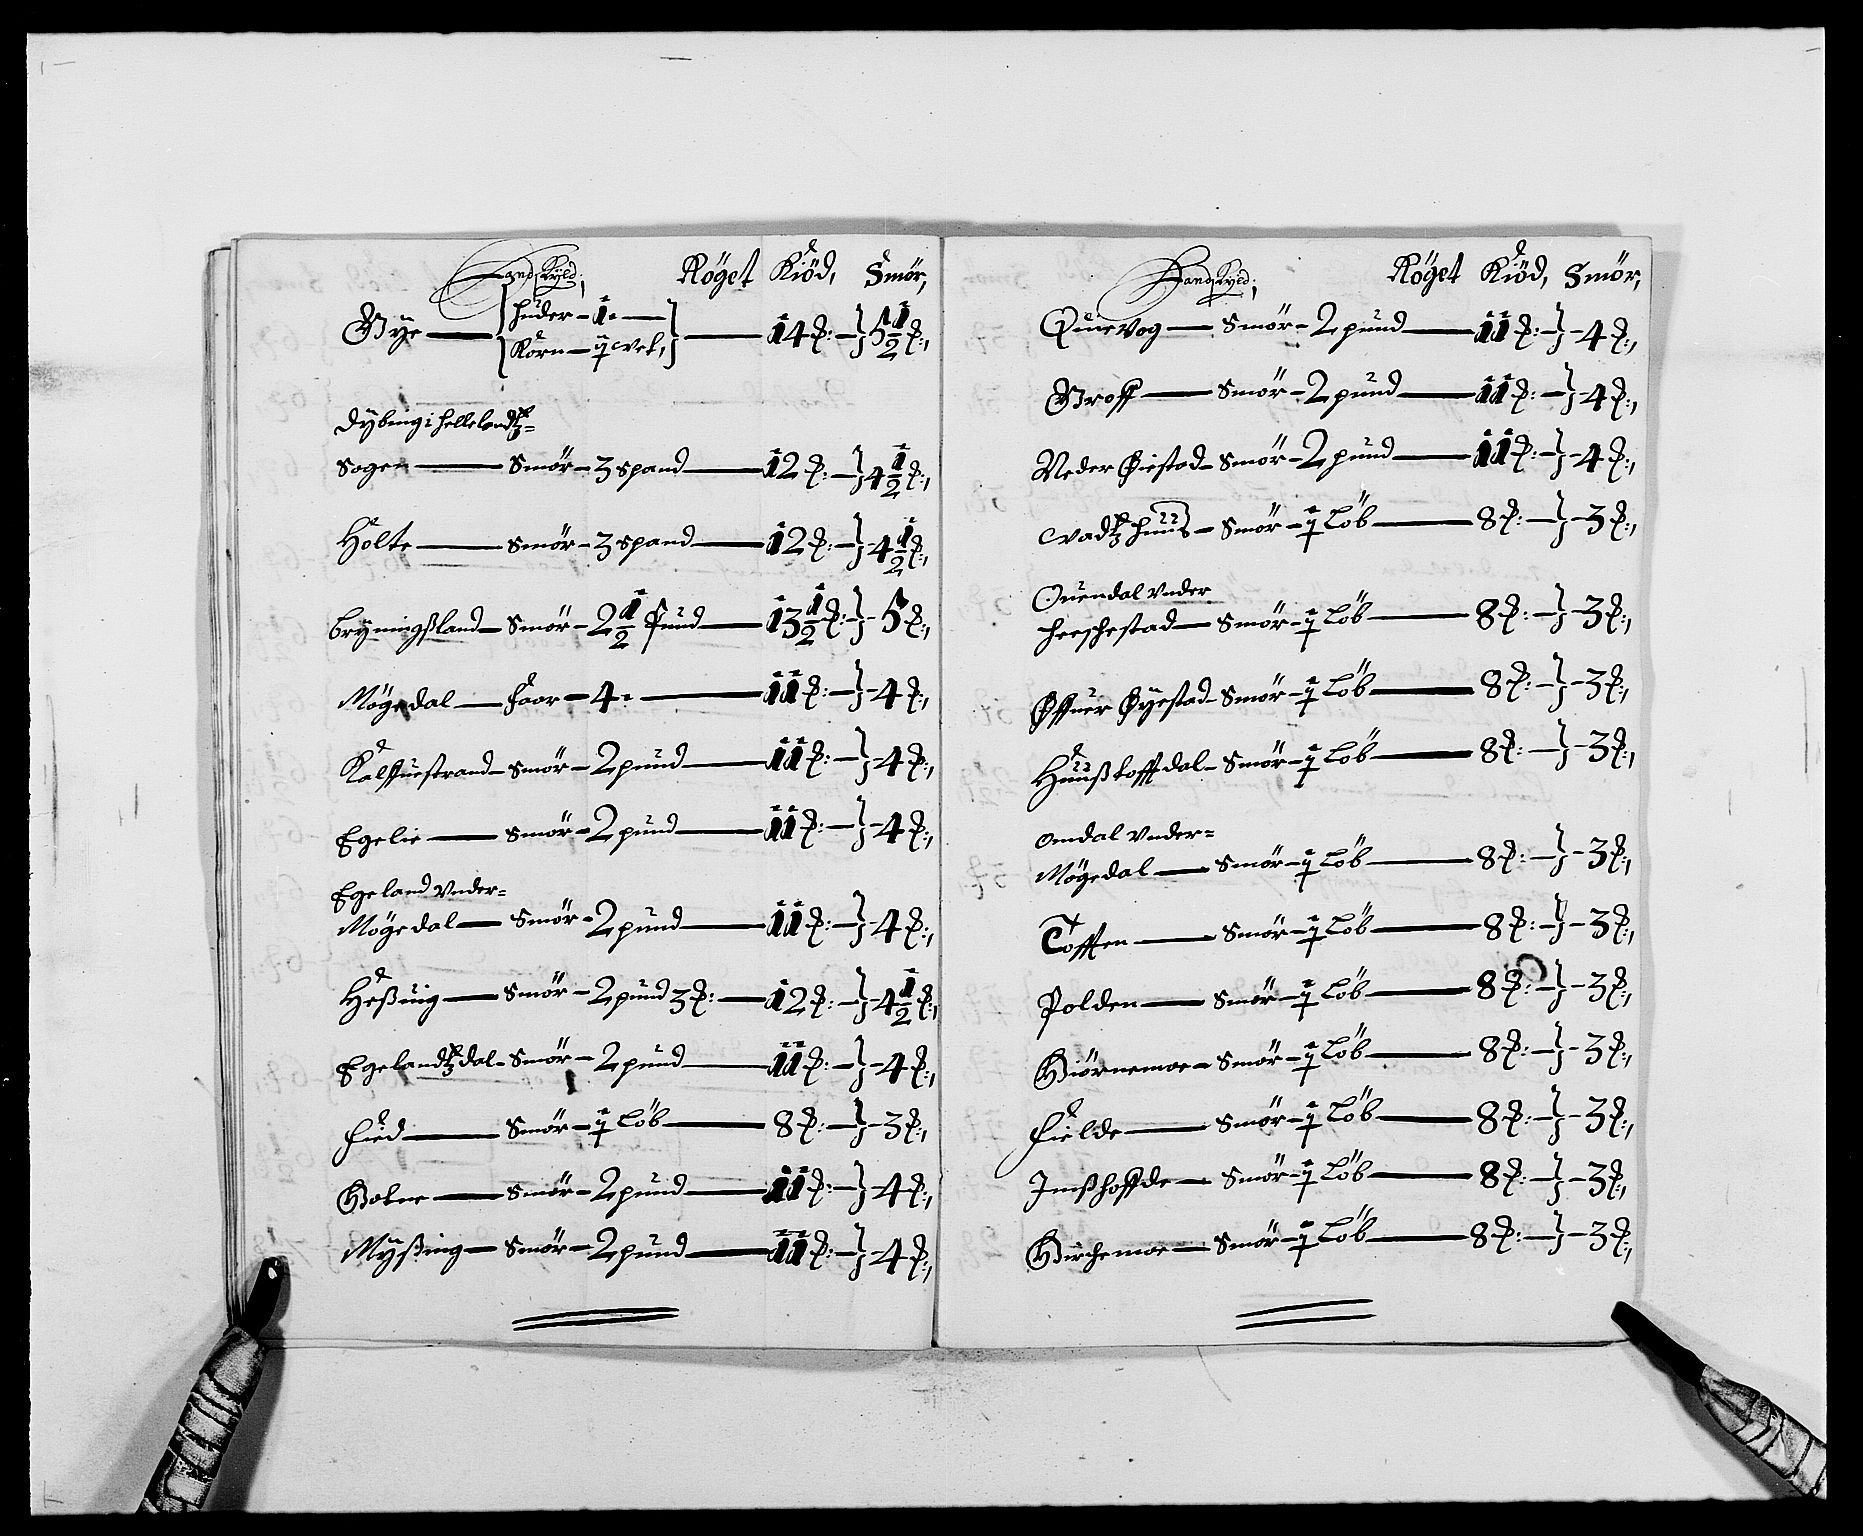 Landskyld, Røget Kiöd, Smör,
Bye — Huder – 1 – 14 ₰: – 5 1/2 ₰:,
Korn – 1 vet,
Dybing i hellelandtz=
Sogen — Smör – 3 spand — 12 ₰: – 4 1/2 ₰:,
Holte — Smör – 3 spand — 12 ₰: – 4 1/2 ₰:,
Bryningßland – Smör – 2 1/2 Pund — 13 1/2 ₰: – 5 ₰:,
Mögedal — faar – 4 – 11 ₰: – 4 ₰:,
Kalffuestrand – Smör – 2 pund — 11 ₰: – 4 ₰:,
Egelie — Smör – 2 pund — 11 ₰: – 4 ₰:,
Egeland Vnder=
Mögedal — Smör – 2 pund — 11 ₰: – 4 ₰:,
Heßuig — Smör – 2 pund 3 ₰: — 12 ₰: – 4 1/2 ₰:,
Egelandtzdal – Smör – 2 pund — 11 ₰: – 4 ₰:,
Hied — Smör – 1 Löb — 8 ₰: – 3 ₰:,
Smör – 2 pund — 11 ₰: – 4 ₰:,
Myßing — Smör – 2 pund — 11 ₰: – 4 ₰:,
Landskyld, Røget Kiöd, Smör,
Quevog — Smör – 2 pund — 11 ₰: – 4 ₰:,
Groff — Smör – 2 pund — 11 ₰: – 4 ₰:,
Neder Øiestad – Smör – 2 pund — 11 ₰: – 4 ₰:,
Vadtzhuus – Smör – 1 Löb — 8 ₰: – 3 ₰:,
Ouendal Vnder
heeschestad — Smör – 1 Löb — 8 ₰: – 3 ₰:,
Øffuer Øyestad – Smör – 1 Löb — 8 ₰: – 3 ₰:,
Huußtofftdal – Smör – 1 Löb — 8 ₰: – 3 ₰:,
Omdal Vnder=
Mögedal — Smör – 1 Löb — 8 ₰: – 3 ₰:,
Tofften — Smör – 1 Löb — 8 ₰: – 3 ₰:,
Polden — Smör – 1 Löb — 8 ₰: – 3 ₰:,
Biörnemoe – Smör – 1 Löb — 8 ₰: – 3 ₰:,
Fielde — Smör – 1 Löb — 8 ₰: – 3 ₰:,
Imßhoffde — Smör – 1 Löb — 8 ₰: – 3 ₰:,
Birchemoe — Smör – 1 Löb — 8 ₰: – 3 ₰:,